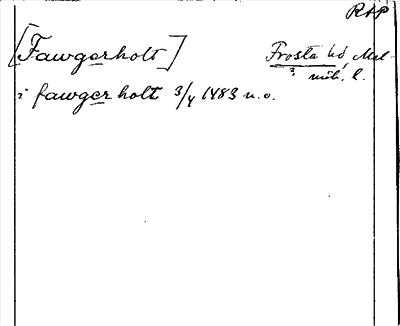 RAP
[Fawgerholt]
Frosta hd, Mal-
? möh. l.
i fawgerholt 3/4 1483 n.o.